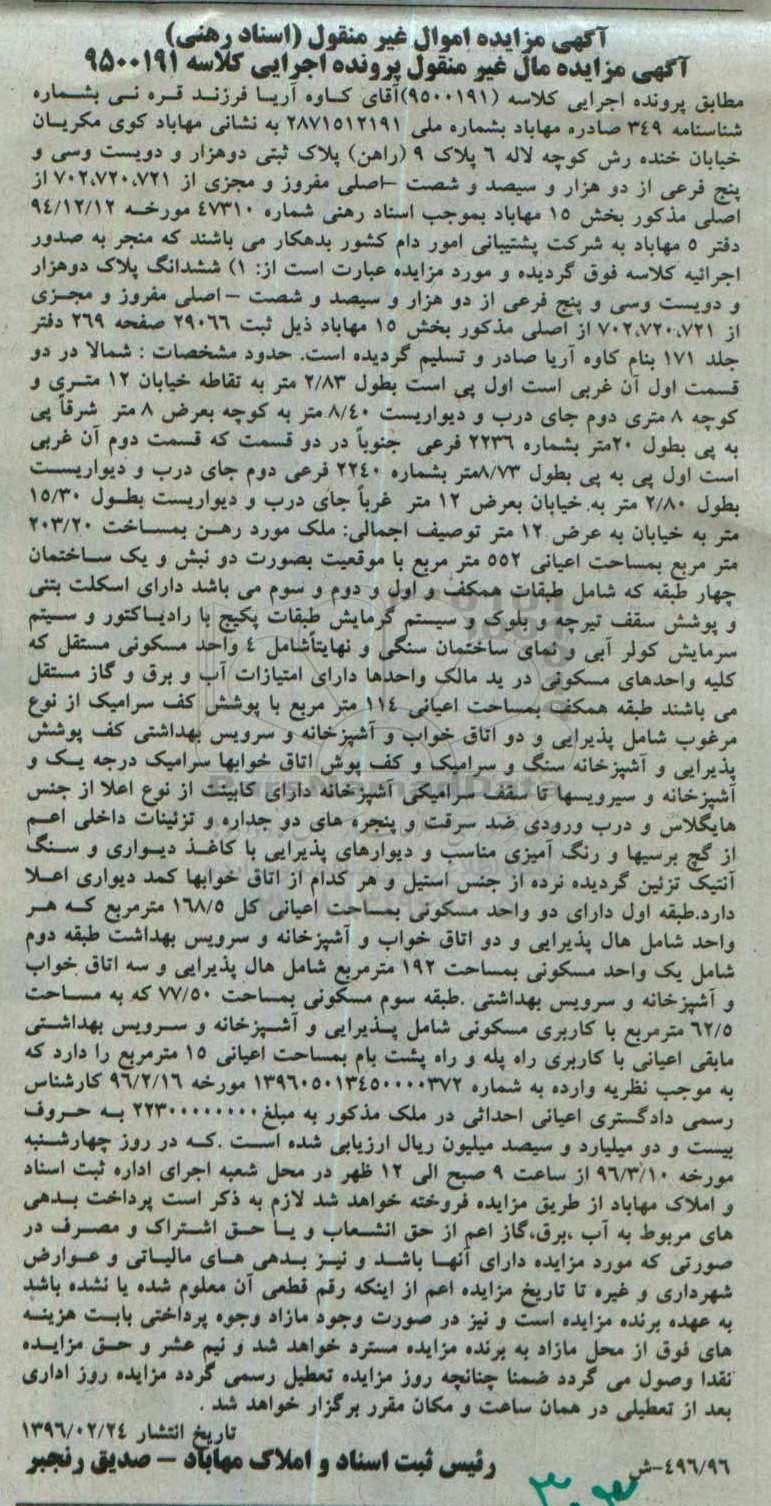 آگهی مزایده اموال غیر منقول (اسناد رهنی)
آگهی مزایده مال غیر منقول پرونده اجرایی کلاسه ۹۵۰۰۱۹۱
مطابق پرونده اجرایی کلاسه (۹۵۰۰۱۹۱)آقای کاوه آریا فرزند قره نی بشماره
شناسنامه ۳۴۹ صادره مهاباد بشماره ملی ۲۸۷۱۵۱۲۱۹۱ به نشانی مهاباد کوی مکریان
خیابان خنده رش کوچه لاله ۶ پلاک ۹ (راهن) پلاک ثبتی دوهزار و دویست وسی و
پنج فرعی از دو هزار و سیصد و شصت –اصلی مفروز و مجزی از ۷۰۲،۷۲۰،۷۲۱ از
اصلی مذکور بخش ۱۵ مهاباد بموجب اسناد رهنی شماره ۴۷۳۱۰ مورخه ۹۴/۱۲/۱۲
دفتر ۵ مهاباد به شرکت پشتیبانی امور دام کشور بدهکار می باشند که منجر به صدور
اجرائیه کلاسه فوق گردیده و مورد مزایده عبارت است از: ۱) ششدانگ پلاک دوهزار
و دویست وسی و پنج فرعی از دو هزار و سیصد و شصت –اصلی مفروز و مجزی
از ۷۰۲،۷۲۰،۷۲۱ از اصلی مذکور بخش ۱۵ مهاباد ذیل ثبت ۲۹۰۶۶ صفحه ۲۶۹ دفتر
جلد ۱۷۱ بنام کاوه آریا صادر و تسلیم گردیده است. حدود مشخصات : شمالا در دو
قسمت اول آن غربی است اول پی است بطول ۲/۸۳ متر به تقاطه خیابان ۱۲ متری و
کوچه ۸ متری دوم جای درب و دیواریست ۸/۴۰ متر به کوچه بعرض ۸ متر شرقاً پی
به پی بطول ۲۰متر بشماره ۲۲۳۶ فرعی جنوباً در دو قسمت که قسمت دوم آن غربی
است اول پی به پی بطول ۸/۷۳متر بشماره ۲۲۴۰ فرعی دوم جای درب و دیواریست
بطول ۲/۸۰ متر به خیابان بعرض ۱۲ متر غرباً جای درب و دیواریست بطول ۱۵/۳۰
متر به خیابان به عرض ۱۲ متر توصیف اجمالی: ملک مورد رهن بمساخت ۲۰۳/۲۰
متر مربع بمساحت اعیانی ۵۵۲ متر مربع با موقعیت بصورت دو نبش و یک ساختمان
چهار طبقه که شامل طبقات همکف و اول و دوم و سوم می باشد دارای اسکلت بتنی
و پوشش سقف تیرچه و بلوک و سیستم گرمایش طبقات پکیج با رادیاکتور و سیتم
سرمایش کولر آبی و نمای ساختمان سنگی و نهایتاًشامل ۴ واحد مسکونی مستقل که
کلیه واحدهای مسکونی در ید مالک واحدها دارای امتیازات آب و برق و گاز مستقل
می باشند طبقه همکف بمساحت اعیانی ۱۱۴ متر مربع با پوشش کف سرامیک از نوع
مرغوب شامل پذیرایی و دو اتاق خواب و آشپزخانه و سرویس بهداشتی کف پوشش
پذیرایی و آشپزخانه سنگ و سرامیک و کف پوش اتاق خوابها سرامیک درجه یک و
آشپزخانه و سیرویسها تا سقف سرامیکی آشپزخانه دارای کابینت از نوع اعلا از جنس
هایگلاس و درب ورودی ضد سرقت و پنجره های دو جداره و تزئینات داخلی اعم
از گچ برسیها و رنگ آمیزی مناسب و دیوارهای پذیرایی با کاغذ دیواری و سنگ
آنتیک تزئین گردیده نرده از جنس استیل و هر کدام از اتاق خوابها کمد دیواری اعلا
دارد.طبقه اول دارای دو واحد مسکونی بمساحت اعیانی کل ۱۶۸/۵ مترمربع که هر
واحد شامل هال پذیرایی و دو اتاق خواب و آشپزخانه و سرویس بهداشت طبقه دوم
شامل یک واحد مسکونی بمساحت ۱۹۲ مترمربع شامل هال پذیرایی و سه اتاق خواب
و آشپزخانه و سرویس بهداشتی .طبقه سوم مسکونی بمساحت ۷۷/۵۰ که به مساحت
۶۲/۵ مترمربع با کاربری مسکونی شامل پذیرایی و آشپزخانه و سرویس بهداشتی
مابقی اعیانی با کاربری راه پله و راه پشت بام بمساحت اعیانی ۱۵ مترمربع را دارد که
به موجب نظریه وارده به شماره ۱۳۹۶۰۵۰۱۳۴۵۰۰۰۰۳۷۲ مورخه ۹۶/۲/۱۶ کارشناس
رسمی دادگستری اعیانی احداثی در ملک مذکور به مبلغ۲۲۳۰۰۰۰۰۰۰۰ به حروف
بیست و دو میلیارد و سیصد میلیون ریال ارزیابی شده است .که در روز چهارشنبه
مورخه ۹۶/۳/۱۰ از ساعت ۹ صبح الی ۱۲ ظهر در محل شعبه اجرای اداره ثبت اسناد
و املاک مهاباد از طریق مزایده فروخته خواهد شد لازم به ذکر است پرداخت بدهی
های مربوط به آب ،برق،گاز اعم از حق انشعاب و یا حق اشتراک و مصرف در
صورتی که مورد مزایده دارای آنها باشد و نیز بدهی های مالیاتی و عوارض
شهرداری و غیره تا تاریخ مزایده اعم از اینکه رقم قطعی آن معلوم شده یا نشده باشد
به عهده برنده مزایده است و نیز در صورت وجود مازاد وجوه پرداختی بابت هزینه
های فوق از محل مازاد به برنده مزایده مسترد خواهد شد و نیم عشر و حق مزایده
نقدا وصول می گردد ضمنا چنانچه روز مزایده تعطیل رسمی گردد مزایده روز اداری
بعد از تعطیلی در همان ساعت و مکان مقرر برگزار خواهد شد .
تاریخ انتشار ۱۳۹۶/۰۲/۲۴
۴۹۶/۹۶-ش رئیس ثبت اسناد و املاک مهاباد – صدیق رنجبر